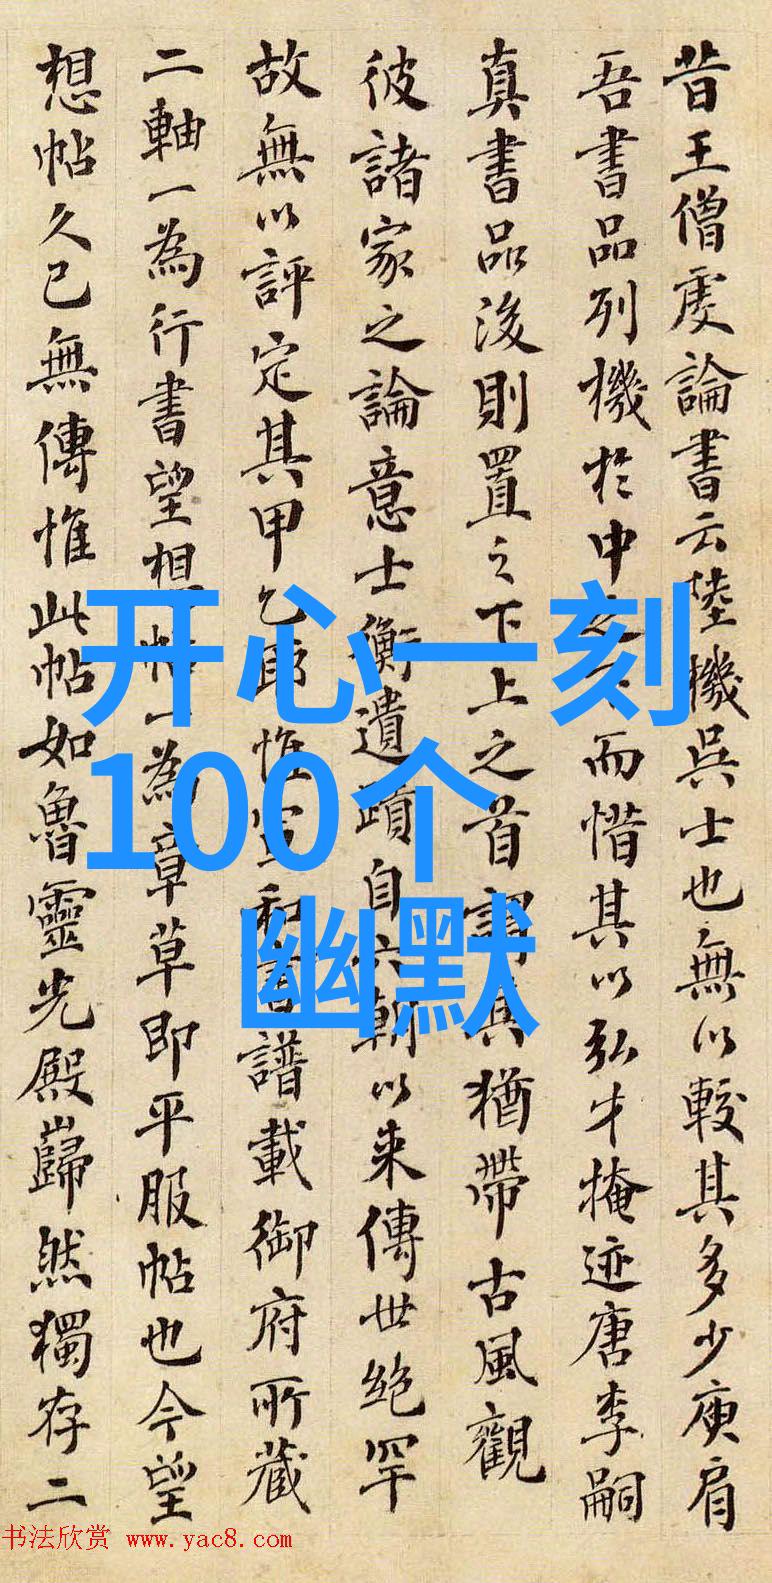 昔王僧虔論書云陸機吳士也無以較其多少庾肩
吾書品列機於中之下而惜其以弘才掩迹唐李嗣
真書品後則置之下上之首謂其猶帶古風觀
彼諸家之論意士衡遺蹟自六朝以来傳世絶罕
故無以評定其甲乙耶惟宣和書譜載御府所藏
二軸一為行書望想帖一為章草即平服帖也今望
想帖久已無傳惟此帖如魯靈光殿巋然獨存二
开心一刻
100个
幽默
书法欣赏 www.yac8.com